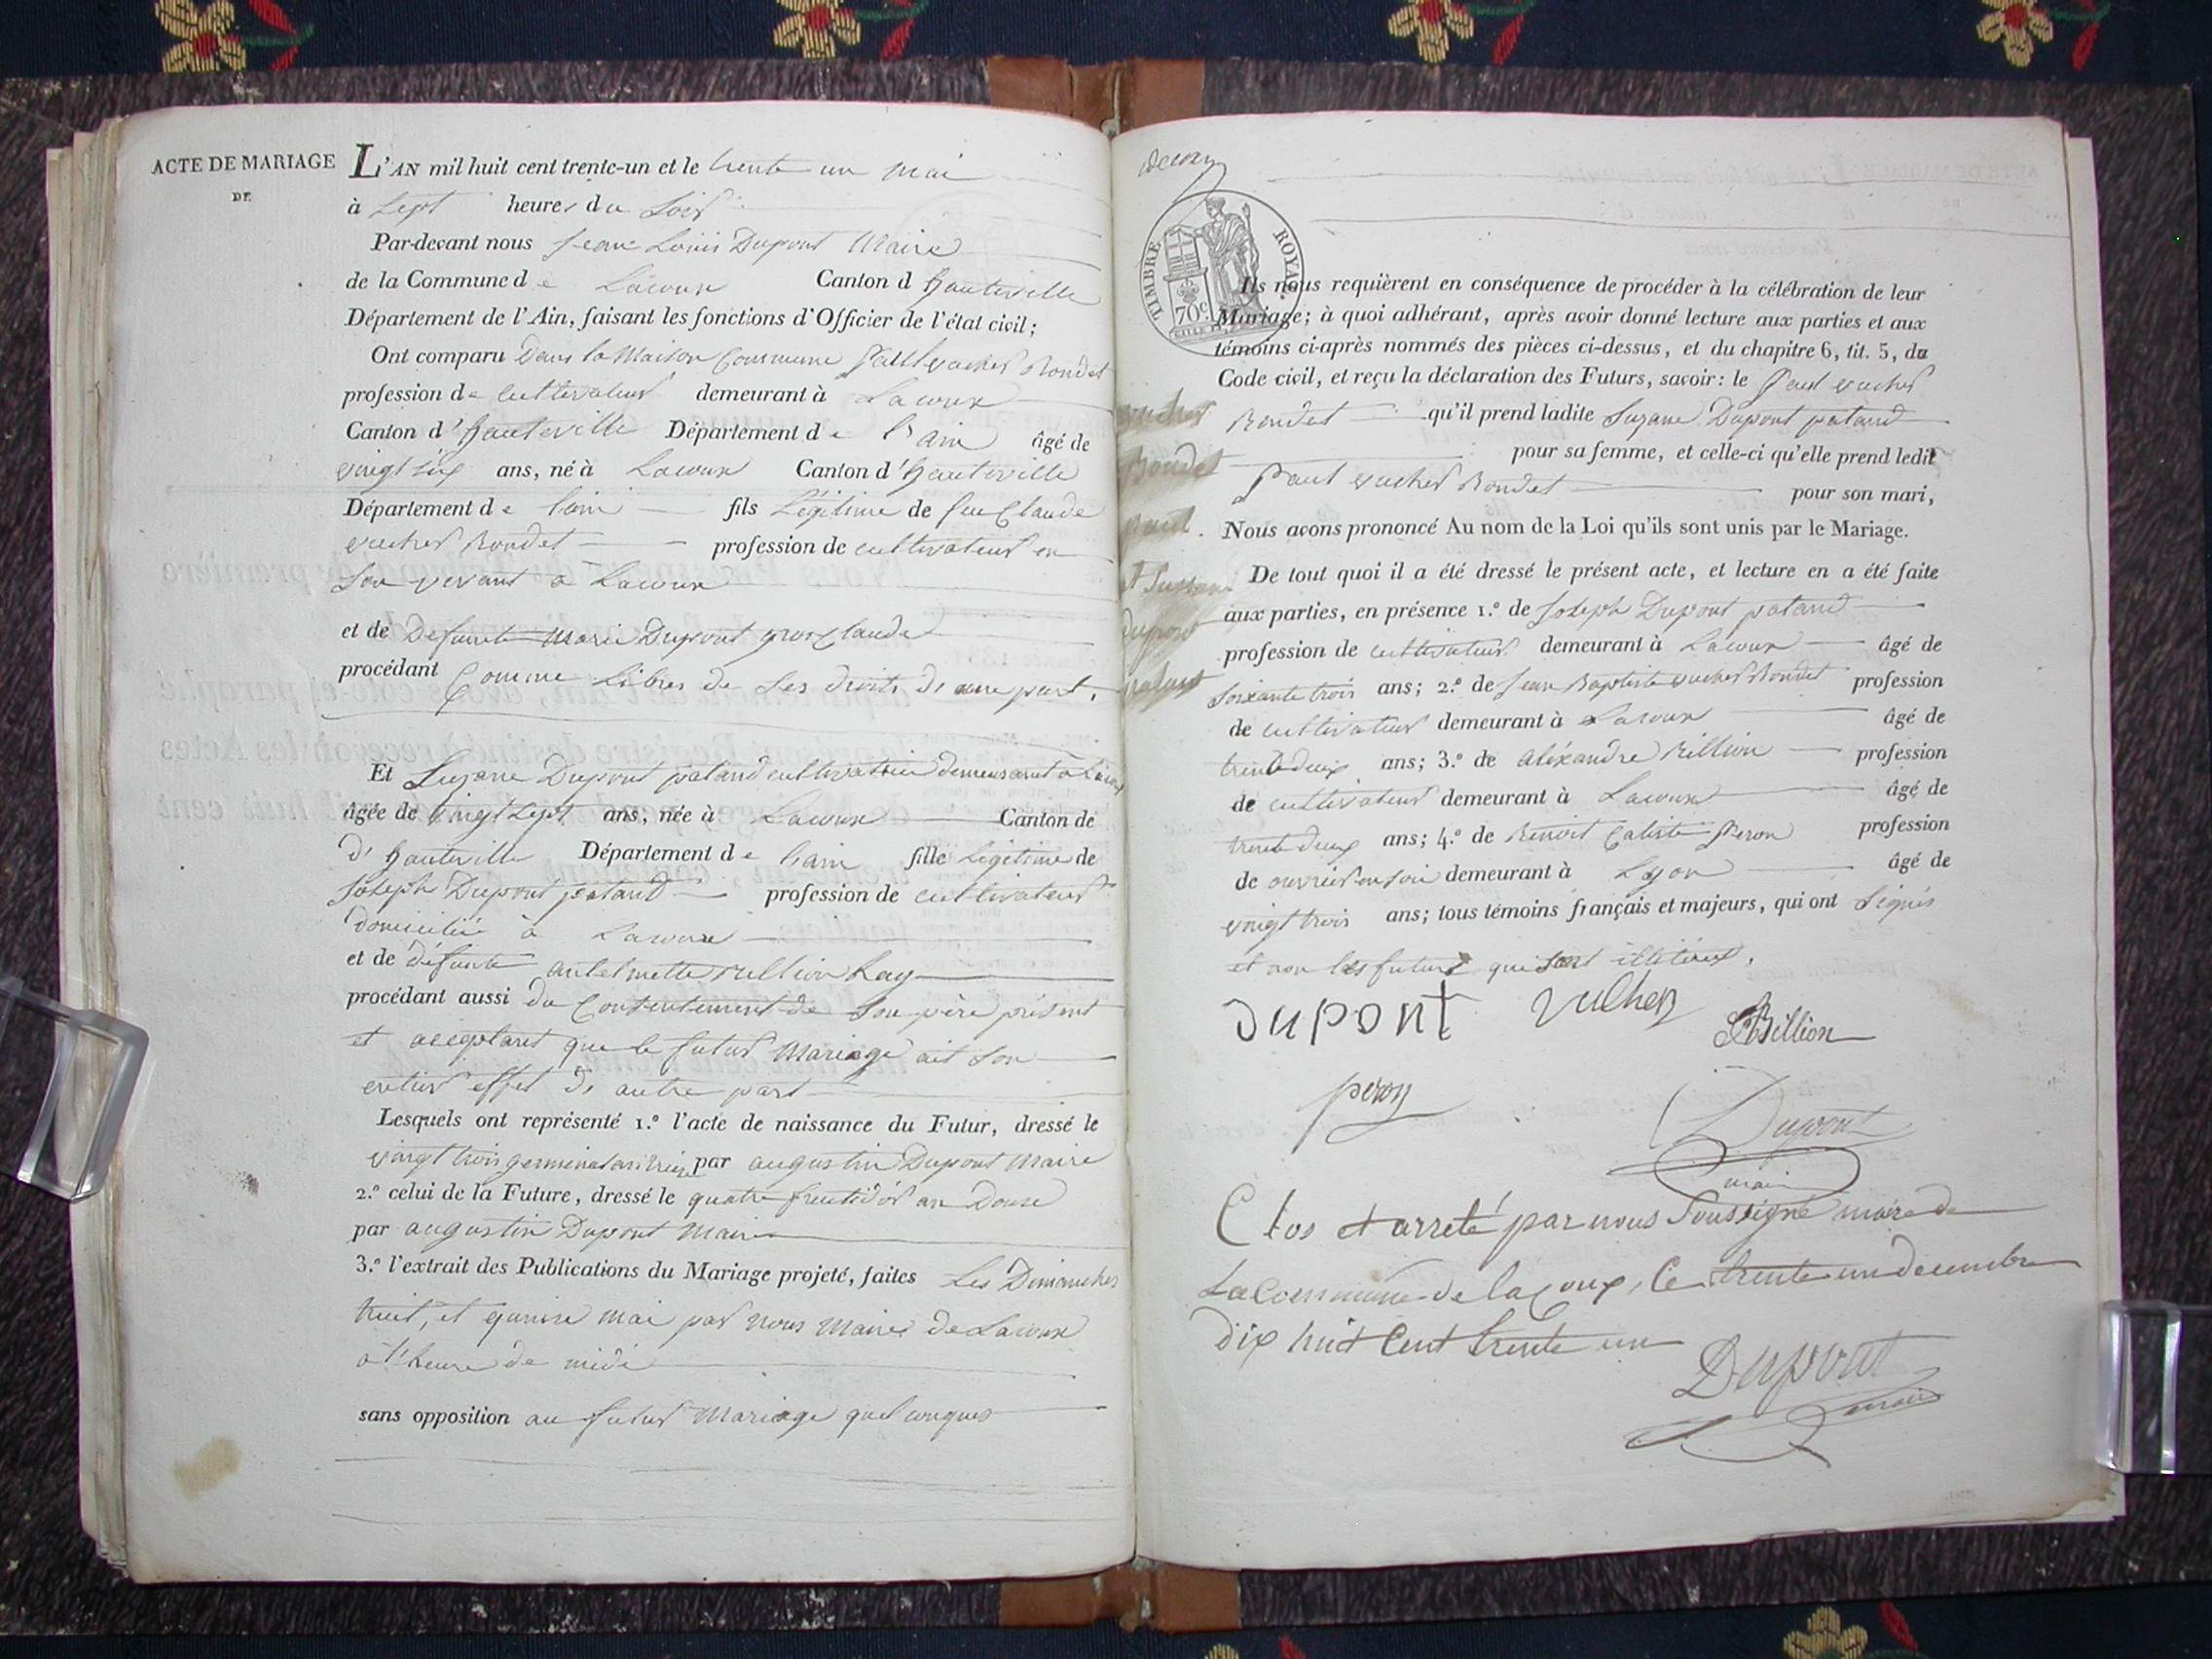 ACTE DE MARIAGE
DE
L'AN mil huit cent trente-un et le trente un mai
à Sept heures du Soir
Par-devant nous Jean Louis Dupont Maire
de la Commune de Lacoux Canton d hauteville
Département de l'Ain, faisant les fonctions d'Officier de l'état civil;
Ont comparu Dans la Maison Commune Paul vucher Rondet
profession de cultivateur demeurant à Lacoux
Canton d'hauteville Département de l'ain âgé de
vingt six ans, né à Lacoux Canton d'hauteville
Département de l'ain fils Légitime de feu Claude
vucher Rondet profession de cultivateur en
Son vivant à Lacoux
et de Defunte Marie Dupont gros Claude
procédant Comme Libres de Ses droits d'une part,
Et Suzane Dupont pataud cultivatrice demeurant à Lacoux
âgée de vingt Sept ans, née à Lacoux Canton de
d'hauteville Département de l'ain fille Légitime de
Joseph Dupont pataud profession de cultivateur
domicilié à Lacoux
et de défunte antelmette Billion Lay
procédant aussi du Consentement de Son père présent
et acceptant que le futur Mariage ait Son
entier effet d'autre part
Lesquels ont représenté 1.º l'acte de naissance du Futur, dressé le
vingt trois germinal an treize par augustin Dupont Maire
2.º celui de la Future, dressé le quatre fructidor an Douze
par augustin Dupont Maire
3.º l'extrait des Publications du Mariage projeté, faites Les Dimanches
huit, et quinze mai par nous Maire de Lacoux
à l'heure de midi
sans opposition au futur Mariage quelconques
TIMBRE ROYAL
70 c.
Ils nous requièrent en conséquence de procéder à la célébration de leur
Mariage; à quoi adhérant, après avoir donné lecture aux parties et aux
témoins ci-après nommés des pièces ci-dessus, et du chapitre 6, tit. 5, du
Code civil, et reçu la déclaration des Futurs, savoir: le Paul vucher
Rondet qu'il prend ladite Suzane Dupont pataud
pour sa femme, et celle-ci qu'elle prend ledit
Paul vucher Rondet pour son mari,
Nous avons prononcé Au nom de la Loi qu'ils sont unis par le Mariage.
vucher
Rondet
Paul
dupont
De tout quoi il a été dressé le présent acte, et lecture en a été faite
aux parties, en présence 1.º de Joseph Dupont pataud
profession de cultivateur demeurant à Lacoux âgé de
Soixante trois ans; 2.º de Jean Baptiste vucher Rondet profession
de cultivateur demeurant à Lacoux âgé de
trente deux ans; 3.º de aléxandre Billion profession
de cultivateur demeurant à Lacoux âgé de
trente deux ans; 4.º de Benoit Caliste Peron profession
de ouvrier en soie demeurant à Lyon âgé de
vingt trois ans; tous témoins français et majeurs, qui ont Signés
et non les futurs qui sont illitérés.
DUPONT vucher Billion
peron
Dupont
maire
Clos et arreté par nous Soussigné maire de
La Commune de lacoux, Ce trente un decembre
dix huit Cent trente un
Dupont
maire